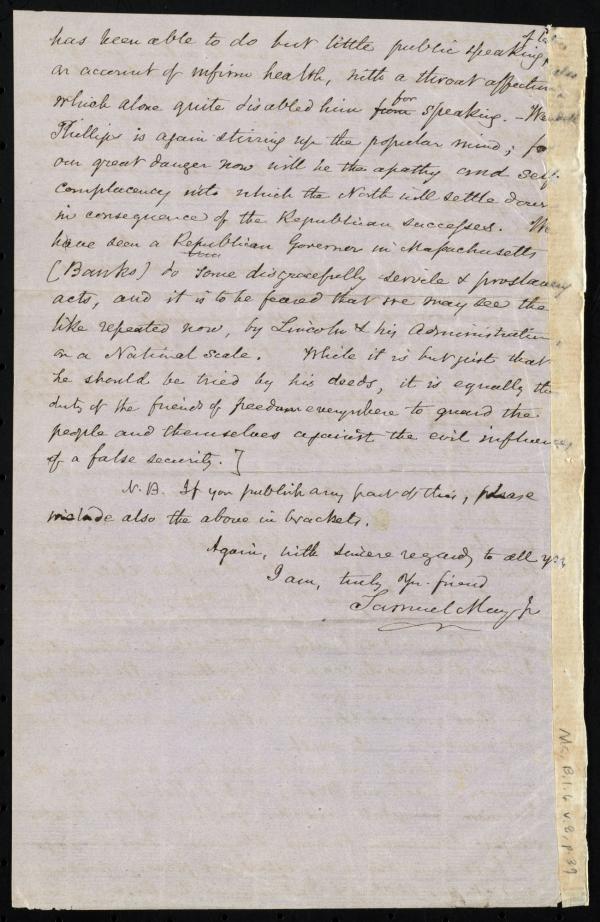 has been able to do but little public speaking,
on account of infirm health, with a throat affection
which alone quite disabled him from for speaking. –
Phillips is again stirring up the popular mind; for
our great danger now will be the apathy and self-
complacency into which the North will settle down
in consequence of the Republican successes. We
have seen a Republican Governor in Massachusetts
(Banks) do some disgracefully servile & proslavery
acts, and it is to be feared that we may see the
like repeated now, by Lincoln & his Administration,
on a National scale. While it is but just that
he should be tried by his deeds, it is equally the
duty of the friends of freedom everywhere to guard the
people and themselves against the evil influences
of a false security.]
N.B. If you publish any part of this, please
include also the above in brackets.
Again, with sincere regards to all
I am, truly Yr. friend
Samuel May Jr
Ms. B.1.6 v.8, p.39